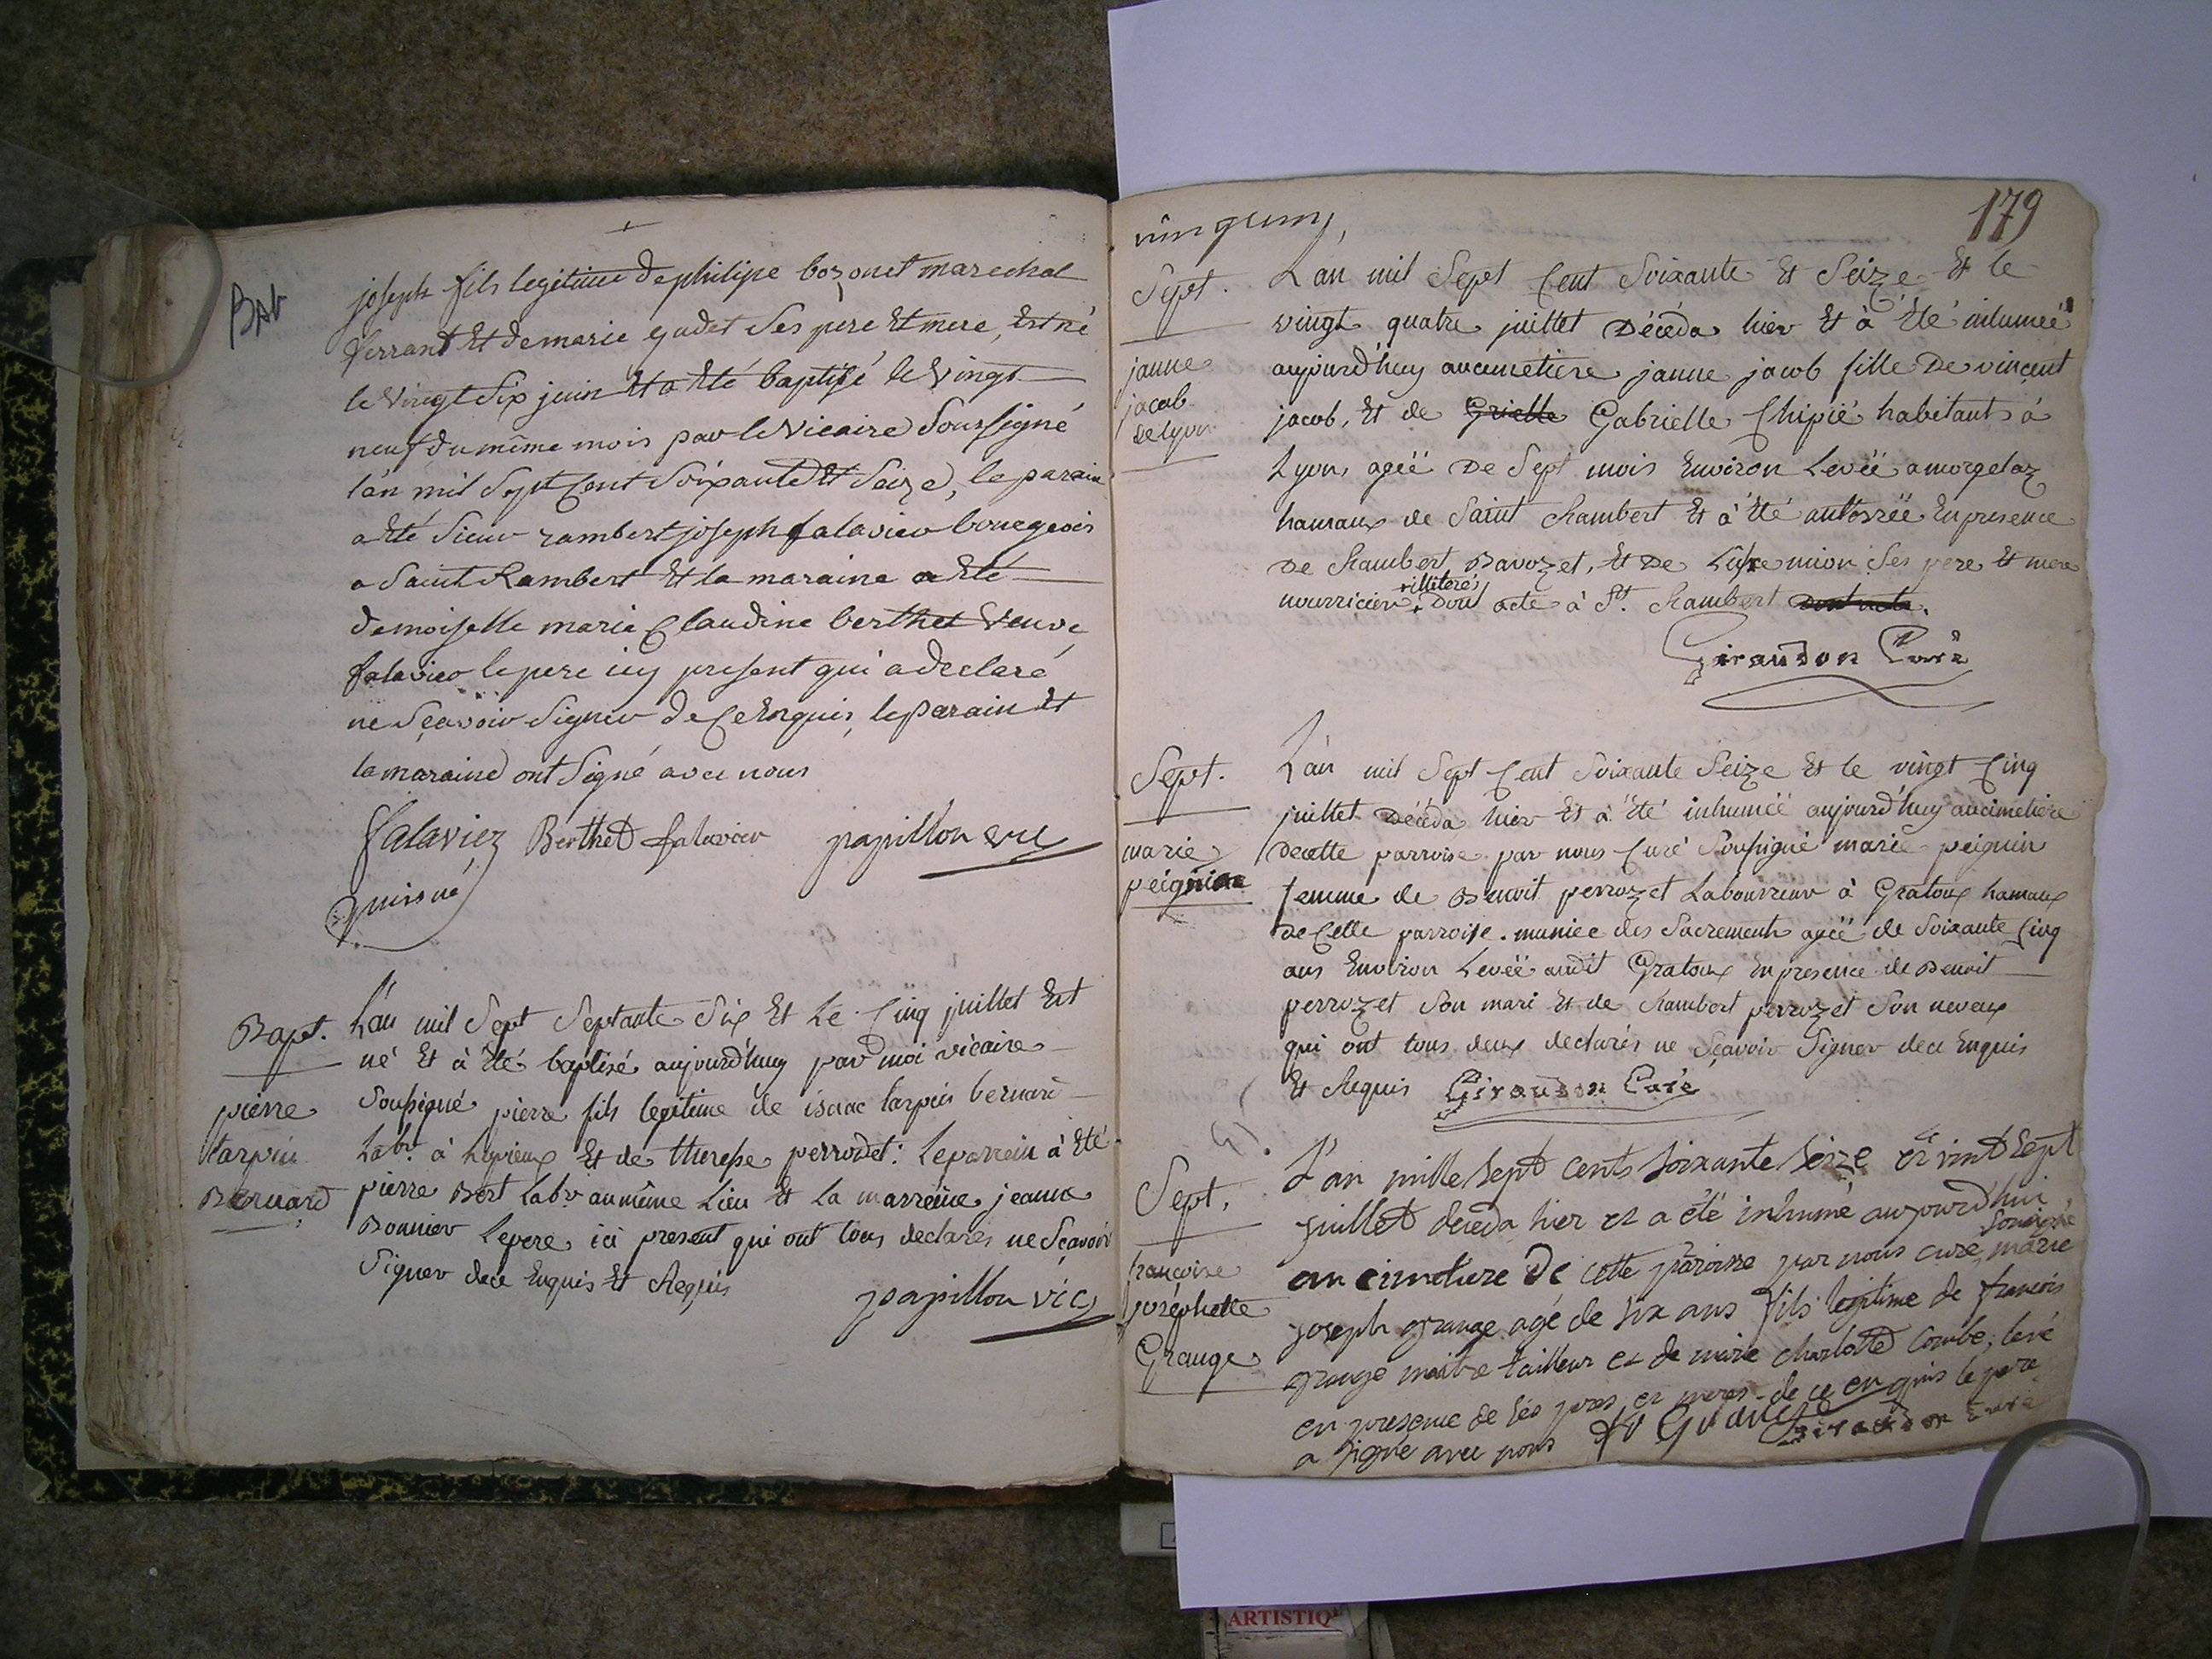 Bat
joseph fils legitime de philipe bozonet marechal
ferrant Et de marie gudet Ses pere Et mere, Est né
le vingt Six juin Et a Eté baptisé le vingt
neuf du même mois par le Vicaire Soussigné
l'an mil Sept Cent Soixante Et Seize, le parain
a Eté Sieur rambert joseph falavier bourgeois
a Saint Rambert Et la maraine a Eté
demoiselle marie Claudine berthet Veuve
falavier le pere icy present qui a declaré
ne Sçavoir Signer de Ce Enquis, le parain Et
la maraine ont Signé avec nous
falaviez Berthet falavier papillon vic
Bapt.
pierre
tarpin
Bernard
L'an mil Sept Septante Six Et Le Cinq juillet Est
né Et à Eté baptisé aujourd'huy par moi vicaire
Soussigné pierre fils legitime de isaac tarpin bernard
Labr. à Et de therese perrodet: Le parrein à Eté
pierre Bert Labr. au même Lieu Et La marreine jeanne
Bonnier Le pere ici present qui ont tous declarés ne Sçavoir
Signer de ce Enquis Et Requis
papillon vic
179
Sept.
janne
jacob
de Lyon
L'an mil Sept Cent Soixante Et Seize Et le
vingt quatre juillet Décéda hier Et à Eté inhumée
aujourd'huy au cimetiere janne jacob fille De vincent
jacob, Et de Grielle Gabrielle Chipié habitants à
Lyon, ageë De Sept mois Environ Levëe a morgelaz
hamaux de Saint Rambert Et à Eté Enpresence
De Rambert Savozet, Et De mion Ses pere Et mere
nourricier + illiteres Dont acte à St. Rambert Dont acte.
Giraudon Curé
Sept.
marie
peignin
L'an mil Sept Cent Soixante Seize Et le vingt Cinq
juillet Décéda hier Et à Eté inhumeë aujourd'huy au cimetiere
de cette parroise par nous Curé Soussigné marie peignin
femme de Benoit perrozet Laboureur à Gratoux hamaux
de Cette parroise. muniée des Sacrements ageë de Soixante Cinq
ans Environ Levëe audit Gratoux En presence de Benoit
perrozet Son mari Et de Rambert perrozet Son neveux
qui ont tous deux declarés ne Sçavoir Signer de ce Enquis
Et Requis Giraudon Curé
Sept.
françoise
joséphette
Grange
L'an mille sept cents soixante seize et vint sept
juillet deceda hier et a été inhumé aujourd'hui
au cimetiere De cette paroisse par nous cure soussigné marie
joseph grange agé de six ans fils legitime de francois
grange maitre tailleur et de marie charlotte Combe, levé
en presence de ses peres et meres de ce enquis le pere
a signé avec nous Grange Giraudon Curé
ARTISTIQ